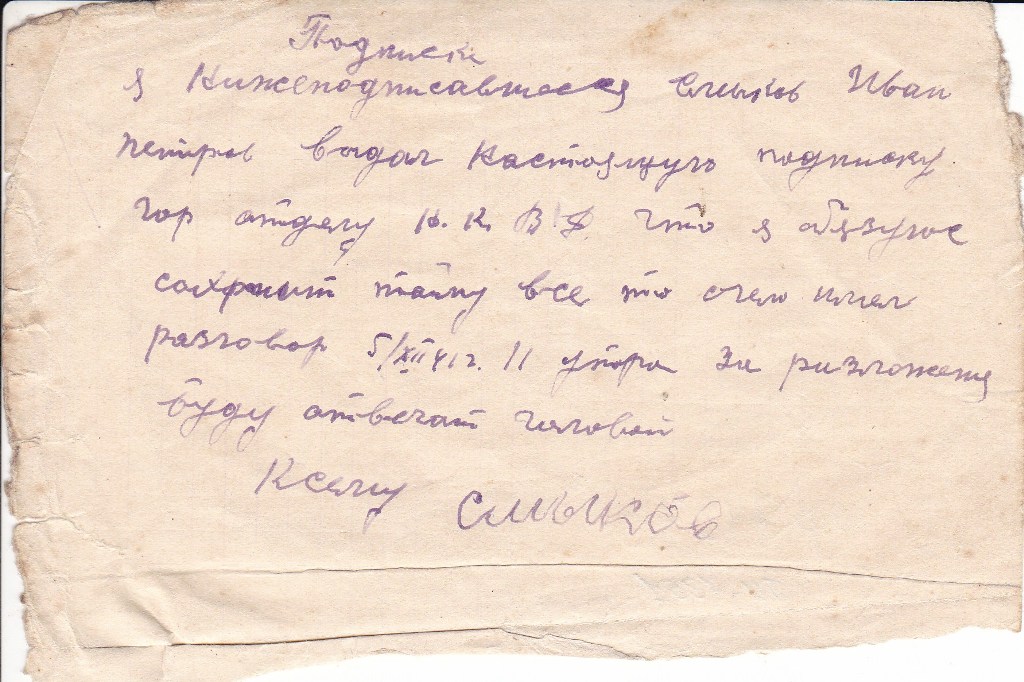 Подписка
я Нижеподписавшееся Смыков Иван
петров выдал настоящую подписку
гор отделу Н. К. В Д. что я обязуюс
сохранит тайну все то очем имел
разговор 5/XII 41 г. 11 утра за разложения
буду отвечат головой
Ксему Смыков